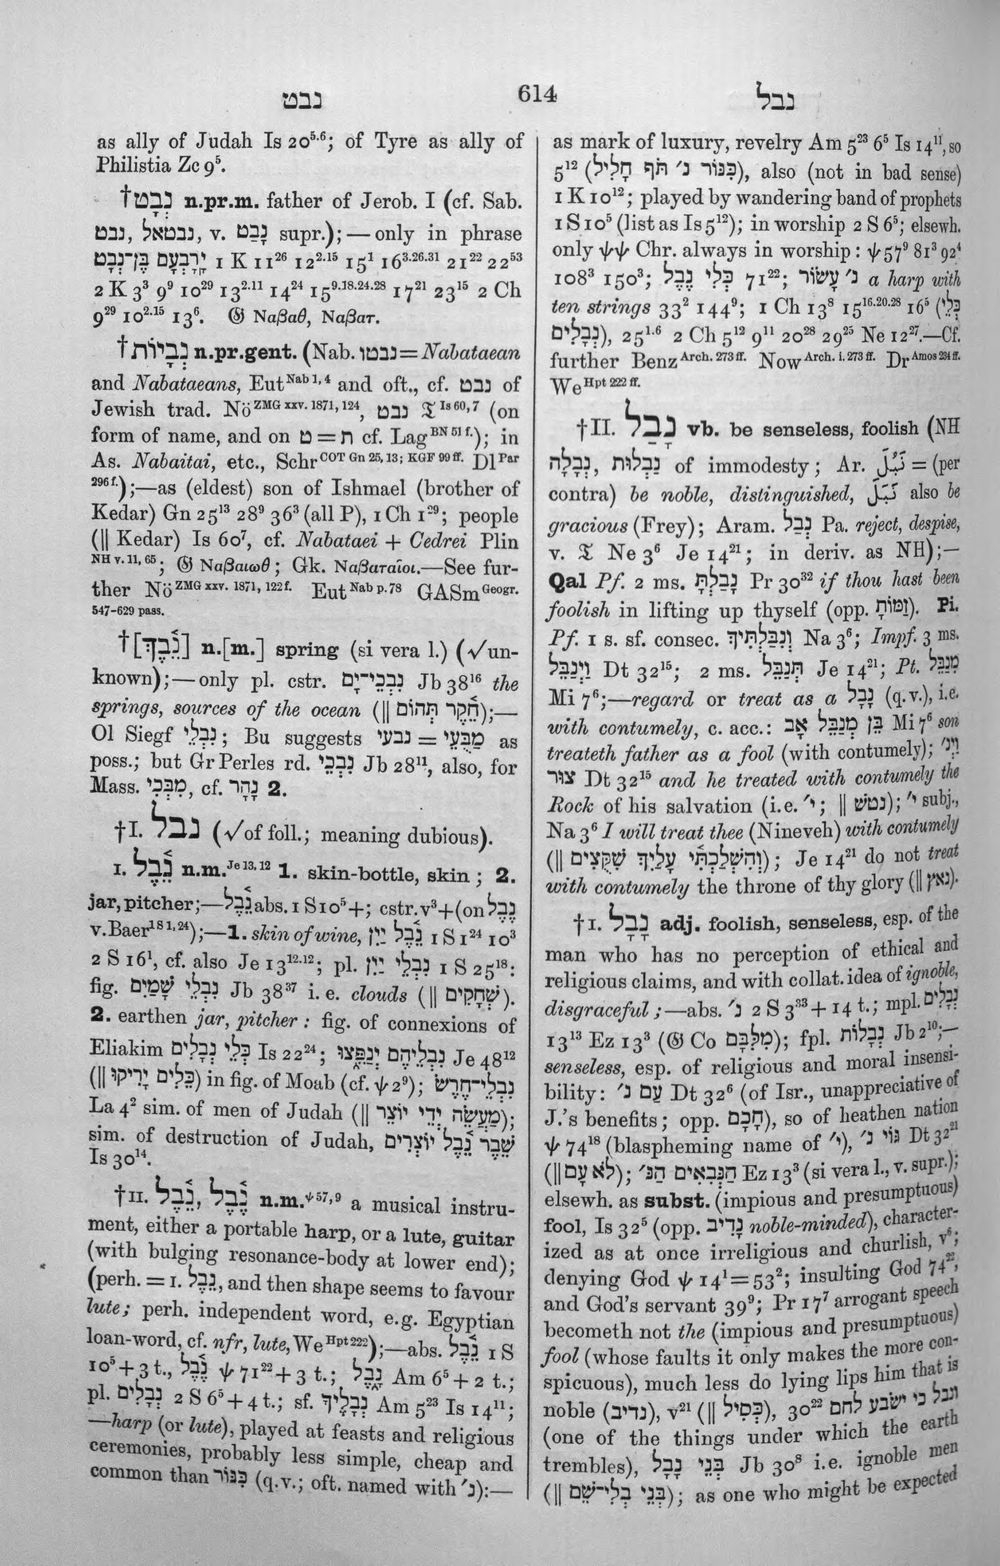 נבט
614
נבל
as ally of Judah Is 20⁵·⁶; of Tyre as ally of
Philistia Zc 9⁵.
†נְבָט n.pr.m. father of Jerob. I (cf. Sab.
נבט, נבטאל, v. נָבַט supr.);—only in phrase
יָרָבְעָם בֶּן־נְבָט 1 K 11²⁶ 12²·¹⁵ 15¹ 16³·²⁶·³¹ 21²² 22⁵³
2 K 3³ 9⁹ 10²⁹ 13²·¹¹ 14²⁴ 15⁹·¹⁸·²⁴·²⁸ 17²¹ 23¹⁵ 2 Ch
9²⁹ 10²·¹⁵ 13⁶. 𝔊 Ναβαθ, Ναβατ.
†נְבָיוֹת n.pr.gent. (Nab. נבטו = Nabataean
and Nabataeans, Eut Nab 1, 4 and oft., cf. נבט of
Jewish trad. Nö ZMG xxv. 1871, 124, נבט 𝔗 Is 60, 7 (on
form of name, and on ט = ת cf. Lag BN 51 f.); in
As. Nabaitai, etc., Schr COT Gn 25, 13; KGF 99 ff. Dl Par
296 f.);—as (eldest) son of Ishmael (brother of
Kedar) Gn 25¹³ 28⁹ 36³ (all P), 1 Ch 1²⁹; people
(‖ Kedar) Is 60⁷, cf. Nabataei + Cedrei Plin
NH v. 11, 65; 𝔊 Ναβαιωθ; Gk. Ναβαταῖοι.—See fur-
ther Nö ZMG xxv. 1871, 122 f. Eut Nab p. 78 GASm Geogr.
547-629 pass.
†[נֵ֫בֶךְ] n.[m.] spring (si vera l.) (√ un-
known);—only pl. cstr. נִבְכֵי־יָם Jb 38¹⁶ the
springs, sources of the ocean (‖ חֵ֫קֶר תְּהוֹם);—
Ol Siegf נִבְלֵי; Bu suggests נבעי = מַבְּעֵי as
poss.; but Gr Perles rd. נִבְכֵי Jb 28¹¹, also, for
Mass. מִבְּכִי, cf. נָהָר 2.
†I. נבל (√ of foll.; meaning dubious).
I. נֵ֫בֶל n.m. Je 13, 12 1. skin-bottle, skin; 2.
jar, pitcher;—נֵ֫בֶל abs. 1 S 10⁵+; cstr. v³+ (on נֶבֶל
v. Baer 1 S 1, 24);—1. skin of wine, נֵבֶל יַיִן 1 S 1²⁴ 10³
2 S 16¹, cf. also Je 13¹²·¹²; pl. נִבְלֵי יַיִן 1 S 25¹⁸:
fig. נִבְלֵי שָׁמַיִם Jb 38³⁷ i. e. clouds (‖ שְׁחָקִים).
2. earthen jar, pitcher: fig. of connexions of
Eliakim כְּלֵי נְבָלִים Is 22²⁴; נִבְלֵיהֶם יְנַפֵּצוּ Je 48¹²
(‖ כֵּלִים יָרִיקוּ) in fig. of Moab (cf. ψ 2⁹); נִבְלֵי־חֶרֶשׂ
La 4² sim. of men of Judah (‖ מַעֲשֵׂה יְדֵי יוֹצֵר);
sim. of destruction of Judah, שֵׁבֶר נֵבֶל יוֹצְרִים
Is 30¹⁴.
†II. נֵ֫בֶל, נֶ֫בֶל n.m. ψ 57, 9 a musical instru-
ment, either a portable harp, or a lute, guitar
(with bulging resonance-body at lower end);
(perh. = I. נֵבֶל, and then shape seems to favour
lute; perh. independent word, e.g. Egyptian
loan-word, cf. nfr, lute, We Hpt 222);—abs. נֵ֫בֶל 1 S
10⁵ + 3 t., נֶ֫בֶל ψ 71²² + 3 t.; נָבֶל Am 6⁵ + 2 t.;
pl. נְבָלִים 2 S 6⁵ + 4 t.; sf. נְבָלֶיךָ Am 5²³ Is 14¹¹;
—harp (or lute), played at feasts and religious
ceremonies, probably less simple, cheap and
common than כִּנּוֹר (q.v.; oft. named with נ׳):—
as mark of luxury, revelry Am 5²³ 6⁵ Is 14¹¹, so
5¹² (כִּנּוֹר נ׳ תֹּף חָלִיל), also (not in bad sense)
1 K 10¹²; played by wandering band of prophets
1 S 10⁵ (list as Is 5¹²); in worship 2 S 6⁵; elsewh.
only ψψ Chr. always in worship: ψ 57⁹ 81³ 92⁴
108³ 150³; כְּלִי נֶבֶל 71²²; נ׳ עָשׂוֹר a harp with
ten strings 33² 144⁹; 1 Ch 13⁸ 15¹⁶·²⁰·²⁸ 16⁵ (כְּלֵי
נְבָלִים), 25¹·⁶ 2 Ch 5¹² 9¹¹ 20²⁸ 29²⁵ Ne 12²⁷.—Cf.
further Benz Arch. 273 ff. Now Arch. i. 273 ff. Dr Amos 234 ff.
We Hpt 222 ff.
†II. נָבַל vb. be senseless, foolish (NH
נְבָלָה, נַבְלוּת of immodesty; Ar. نَبُلَ = (per
contra) be noble, distinguished, نَبَلَ also be
gracious (Frey); Aram. נְבַל Pa. reject, despise,
v. 𝔗 Ne 3⁶ Je 14²¹; in deriv. as NH);—
Qal Pf. 2 ms. נָבַלְתָּ Pr 30³² if thou hast been
foolish in lifting up thyself (opp. זַמּוֹתָ). Pi.
Pf. 1 s. sf. consec. וְנִבַּלְתִּיךְ Na 3⁶; Impf. 3 ms.
וַיְנַבֵּל Dt 32¹⁵; 2 ms. תְּנַבֵּל Je 14²¹; Pt. מְנַבֵּל
Mi 7⁶;—regard or treat as a נָבָל (q.v.), i.e.
with contumely, c. acc.: בֵּן מְנַבֵּל אָב Mi 7⁶ son
treateth father as a fool (with contumely); וַיְנ׳
צוּר Dt 32¹⁵ and he treated with contumely the
Rock of his salvation (i.e. י׳; ‖ נטשׁ); י׳ subj.,
Na 3⁶ I will treat thee (Nineveh) with contumely
(‖ וְהִשְׁלַכְתִּי עָלַיִךְ שִׁקֻּצִים); Je 14²¹ do not treat
with contumely the throne of thy glory (‖ נאץ).
†I. נָבָל adj. foolish, senseless, esp. of the
man who has no perception of ethical and
religious claims, and with collat. idea of ignoble,
disgraceful;—abs. נ׳ 2 S 3³³ + 14 t.; mpl. נְבָלִים
13¹³ Ez 13³ (𝔊 Co מִלִּבָּם); fpl. נְבָלוֹת Jb 2¹⁰;—
senseless, esp. of religious and moral insensi-
bility: עַם נ׳ Dt 32⁶ (of Isr., unappreciative of
J.'s benefits; opp. חָכָם), so of heathen nation
ψ 74¹⁸ (blaspheming name of י׳), גּוֹי נ׳ Dt 32²¹
(‖ לֹא עָם); הַנְּבִאִים הַנּ׳ Ez 13³ (si vera l., v. supr.);
elsewh. as subst. (impious and presumptuous)
fool, Is 32⁵ (opp. נָדִיב noble-minded), character-
ized as at once irreligious and churlish, v⁶;
denying God ψ 14¹ = 53²; insulting God 74²²,
and God's servant 39⁹; Pr 17⁷ arrogant speech
becometh not the (impious and presumptuous)
fool (whose faults it only makes the more con-
spicuous), much less do lying lips him that is
noble (נדיב), v²¹ (‖ כְּסִיל), 30²² ונבל כי ישׂבע לחם
(one of the things under which the earth
trembles), בְּנֵי נָבָל Jb 30⁸ i.e. ignoble men
(‖ בְּנֵי בְלִי־שֵׁם); as one who might be expected